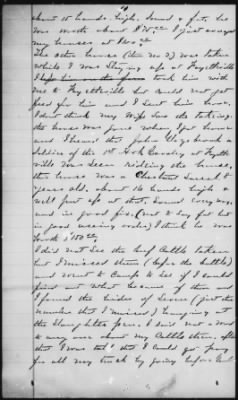 about 15 hands high, sound & fat, he
was worth about $150.00 I just
my horses at
The other horse (item no 2) was taken
while I was staying off at Fayetteville
I left him on the farm took him with
me to Fayetteville but could not get
feed for him and I sent him home.
I don't think my Wife saw the taking.
the horse was gone when I got home
and I heard that John
soldier of the 1st Ark Cavalry at Fayette
ville was seen riding the horse,
this horse was a Chestnut Sorrel 8
years old. about 16 hands high &
well kept up at that, sound every way,
and in good fix. (not so very fat but
in good order) I think he was
worth $150.00
I did not see the beef Cattle taken
but I missed them (before the battle)
and went to Camps to see if I could
find out what became of them and
I found the hides of seven (just the
number that I missed) hanging at
the slaughter pens. I said not a word
to any one about my Cattle then, after
that I was told that I could get pay
for all my truck by going before